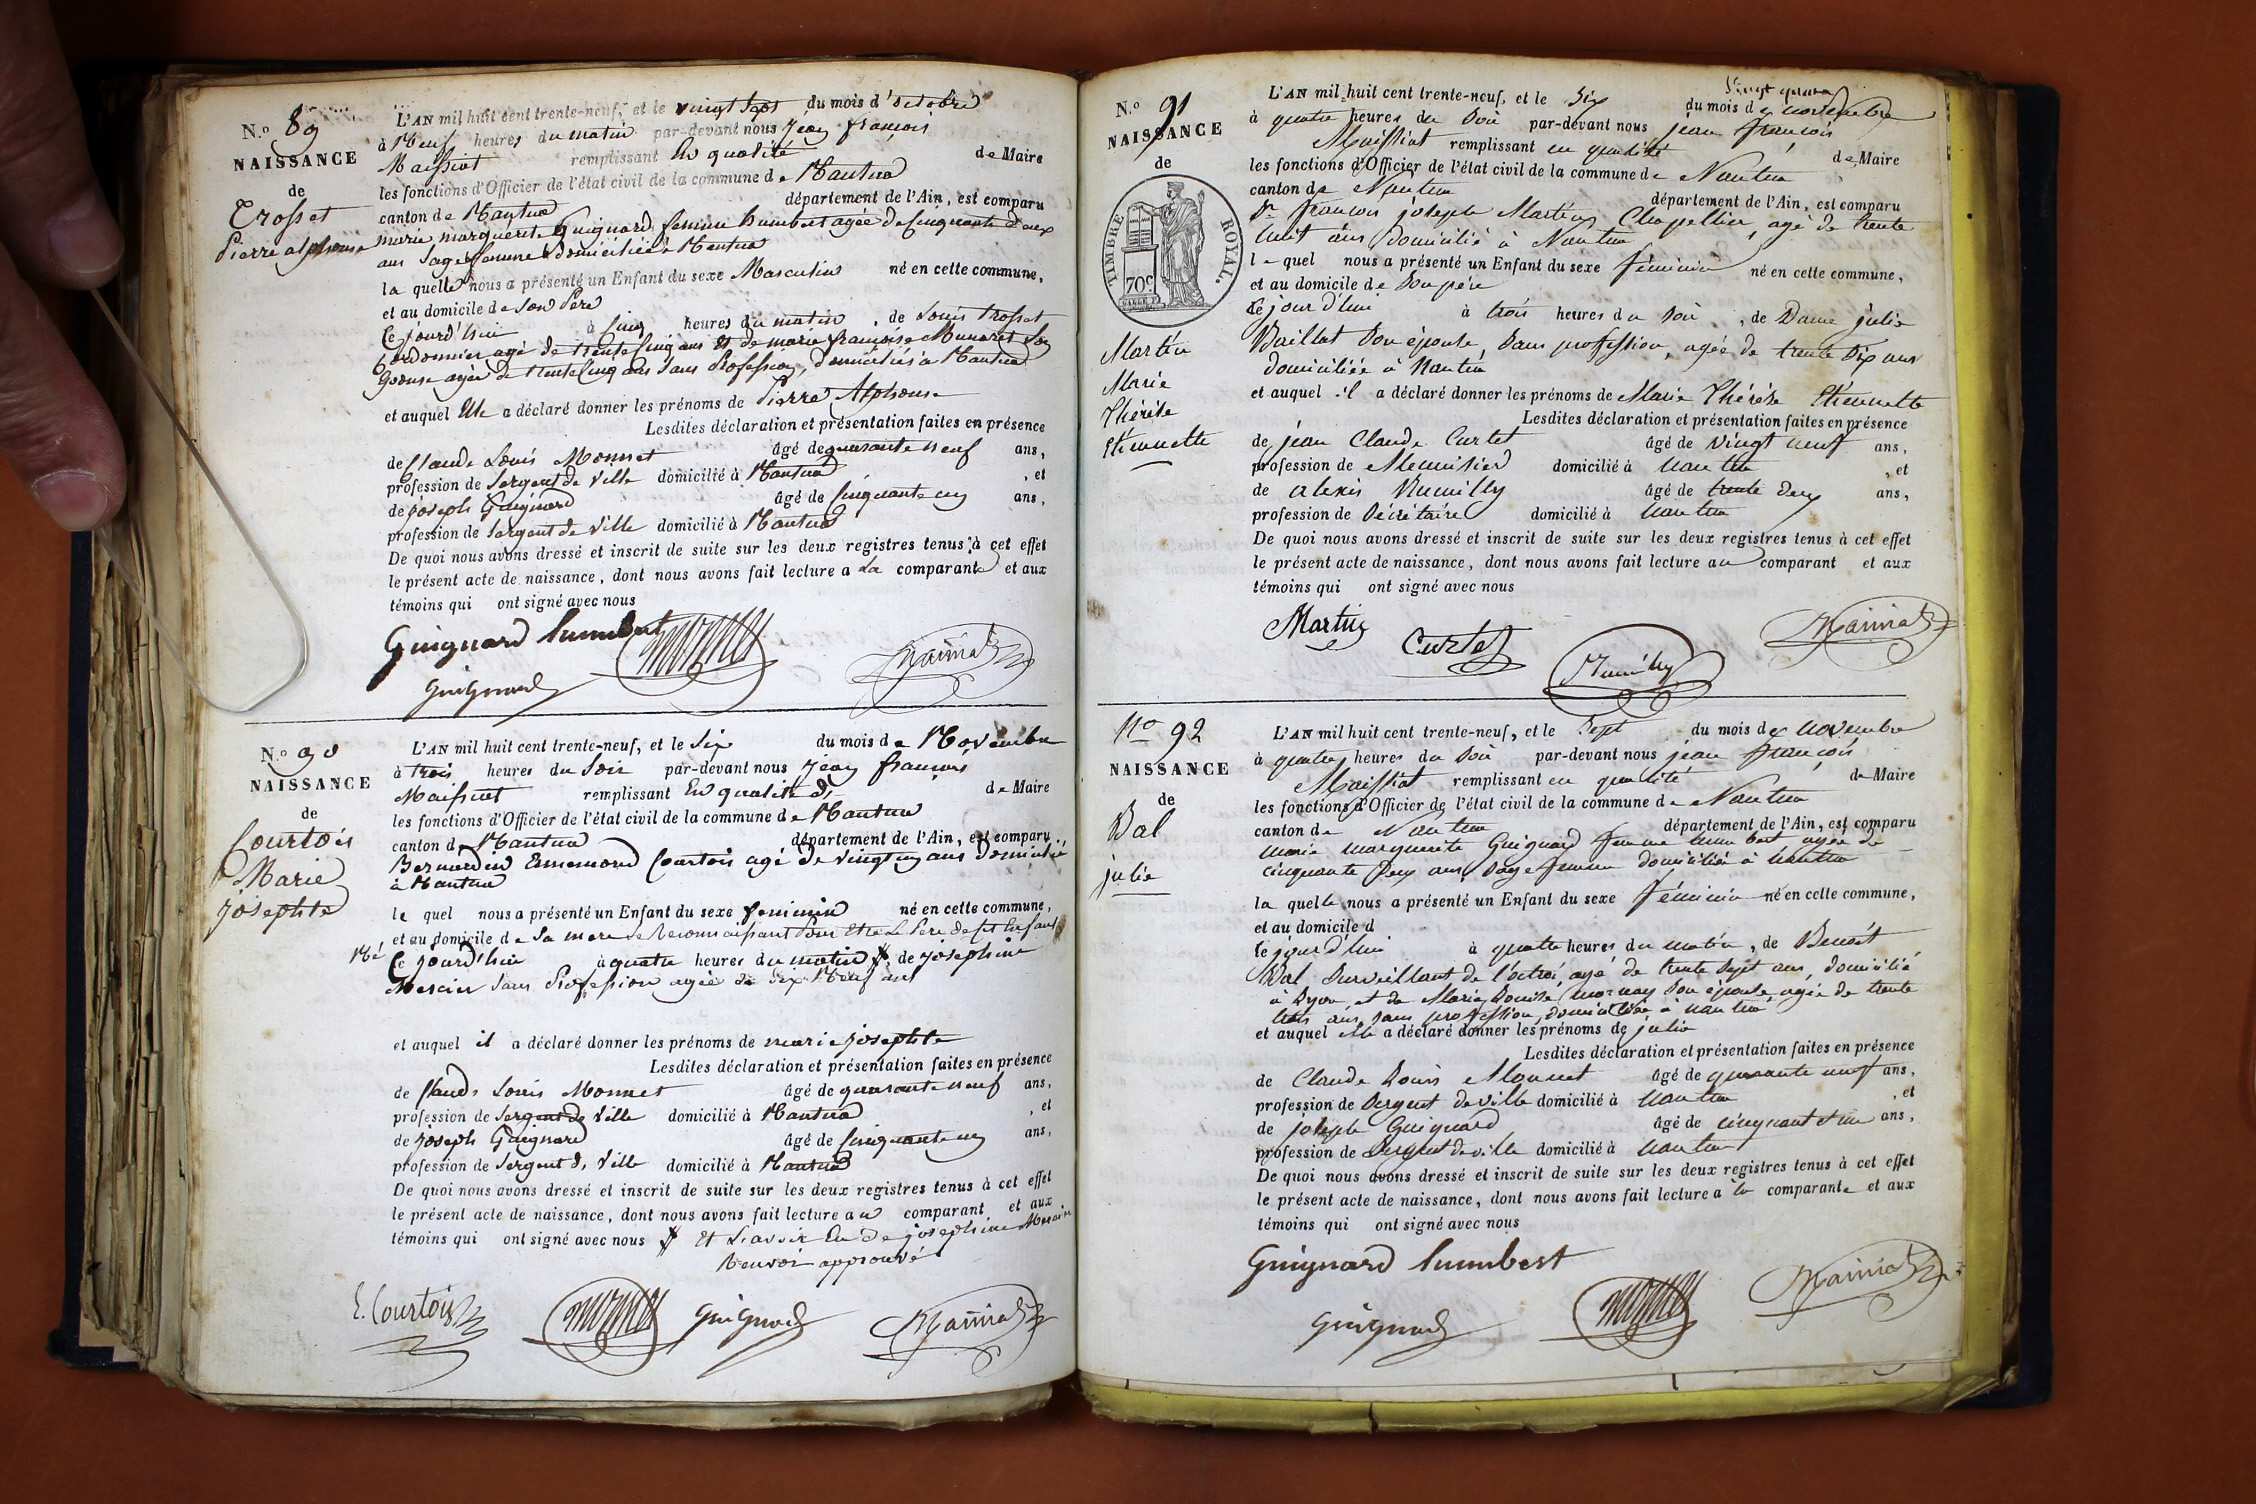 N.º 89
NAISSANCE
de
Crosset
Pierre alphonse
L'AN mil huit cent trente-neuf, et le vingt Sept du mois d'octobre
à Neuf heures du matin par-devant nous Jean françois
Maissiat remplissant En qualité de Maire
les fonctions d'Officier de l'état civil de la commune de Nantua
canton de Nantua département de l'Ain, est comparu
marie marguerite Guignard femme humbert agée de Cinquante deux
ans Sage femme domiciliée à Nantua
la quelle nous a présenté un Enfant du sexe Masculin né en cette commune,
et au domicile de Son Père
Ce jourd'hui à Cinq heures du matin, de Louis Crosset
Cordonnier agé de trente Cinq ans et de marie françoise Munaret Son
Epouse agée de trente Cinq ans Sans Profession, domiciliés à Nantua
et auquel Elle a déclaré donner les prénoms de Pierre Alphonse
Lesdites déclaration et présentation faites en présence
de Claude Louis Monnet âgé de quarante neuf ans,
profession de Sergent de Ville domicilié à Nantua, et
de joseph Guignard âgé de Cinquante un ans,
profession de Sergent de Ville domicilié à Nantua
De quoi nous avons dressé et inscrit de suite sur les deux registres tenus à cet effet
le présent acte de naissance, dont nous avons fait lecture a La comparante et aux
témoins qui ont signé avec nous
Guignard humbert monnet
Guignard Maissiat
N.º 90
NAISSANCE
de
Courtois
Marie
Josephte
L'AN mil huit cent trente-neuf, et le Six du mois de Novembre
à trois heures du Soir par-devant nous Jean françois
Maissiat remplissant En qualité de Maire
les fonctions d'Officier de l'état civil de la commune de Nantua
canton de Nantua département de l'Ain, est comparu
Bernardin Ennemond Courtois agé de vingt un ans domicilié
à Nantua
le quel nous a présenté un Enfant du sexe feminin né en cette commune,
et au domicile de Sa mere Se Reconnaissant Pour Etre Le Père de cet Enfant
Né Ce jourd'hui à quatre heures du matin, de josephine
Mercier Sans Profession agée de dix Neuf ans
et auquel il a déclaré donner les prénoms de marie josephte
Lesdites déclaration et présentation faites en présence
de Claude Louis Monnet âgé de quarante neuf ans,
profession de Sergent de Ville domicilié à Nantua, et
de joseph Guignard âgé de Cinquante un ans,
profession de Sergent de Ville domicilié à Nantua
De quoi nous avons dressé et inscrit de suite sur les deux registres tenus à cet effet
le présent acte de naissance, dont nous avons fait lecture au comparant et aux
témoins qui ont signé avec nous Et L'avoir Eu de josephine Mercier
Renvoi approuvé
E. Courtois monnet Guignard Maissiat
N.º 91
NAISSANCE
de
TIMBRE ROYAL.
70c
Martin
Marie
Thérèse
Etiennette
L'AN mil huit cent trente-neuf, et le Six du mois de novembre
à quatre heures du Soir par-devant nous jean françois
Maissiat remplissant en qualité de Maire
les fonctions d'Officier de l'état civil de la commune de Nantua
canton de Nantua département de l'Ain, est comparu
Sr françois joseph Martin, Chapellier, agé de trente
huit ans domicilié à Nantua
le quel nous a présenté un Enfant du sexe féminin né en cette commune,
et au domicile de Son père
Ce jour d'hui à trois heures du Soir, de Dame julie
Baillat Son épouse, Sans profession, agée de trente Six ans
domiciliée à Nantua
et auquel il a déclaré donner les prénoms de Marie Thérèse Etiennette
Lesdites déclaration et présentation faites en présence
de jean Claude Curtet âgé de vingt neuf ans,
profession de Menuisier domicilié à nantua, et
de alexis Rumilly âgé de trente deux ans,
profession de Sécrétaire domicilié à nantua
De quoi nous avons dressé et inscrit de suite sur les deux registres tenus à cet effet
le présent acte de naissance, dont nous avons fait lecture au comparant et aux
témoins qui ont signé avec nous
Martin Curtet Rumilly Maissiat
No 92
NAISSANCE
de
Bal
julie
L'AN mil huit cent trente-neuf, et le Sept du mois de novembre
à quatre heures du Soir par-devant nous jean françois
Maissiat remplissant en qualité de Maire
les fonctions d'Officier de l'état civil de la commune de Nantua
canton de Nantua département de l'Ain, est comparu
marie marguerite Guignard femme humbert agée de
cinquante deux ans, Sage femme domiciliée à nantua
la quelle nous a présenté un Enfant du sexe féminin né en cette commune,
et au domicile d
Ce jour d'hui à quatre heures du matin, de Benoît
Bal Surveillant de l'octroi, agé de trente Sept ans, domicilié
à Lyon et de Marie Louise mornay Son épouse agée de trente
trois ans, Sans profession, domiciliée à nantua
et auquel elle a déclaré donner les prénoms de julie
Lesdites déclaration et présentation faites en présence
de Claude Louis Monnet âgé de quarante neuf ans,
profession de Sergent de ville domicilié à nantua, et
de joseph Guignard âgé de cinquant et un ans,
profession de Sergent de ville domicilié à nantua
De quoi nous avons dressé et inscrit de suite sur les deux registres tenus à cet effet
le présent acte de naissance, dont nous avons fait lecture a la comparante et aux
témoins qui ont signé avec nous
Guignard humbert
Guignard monnet Maissiat